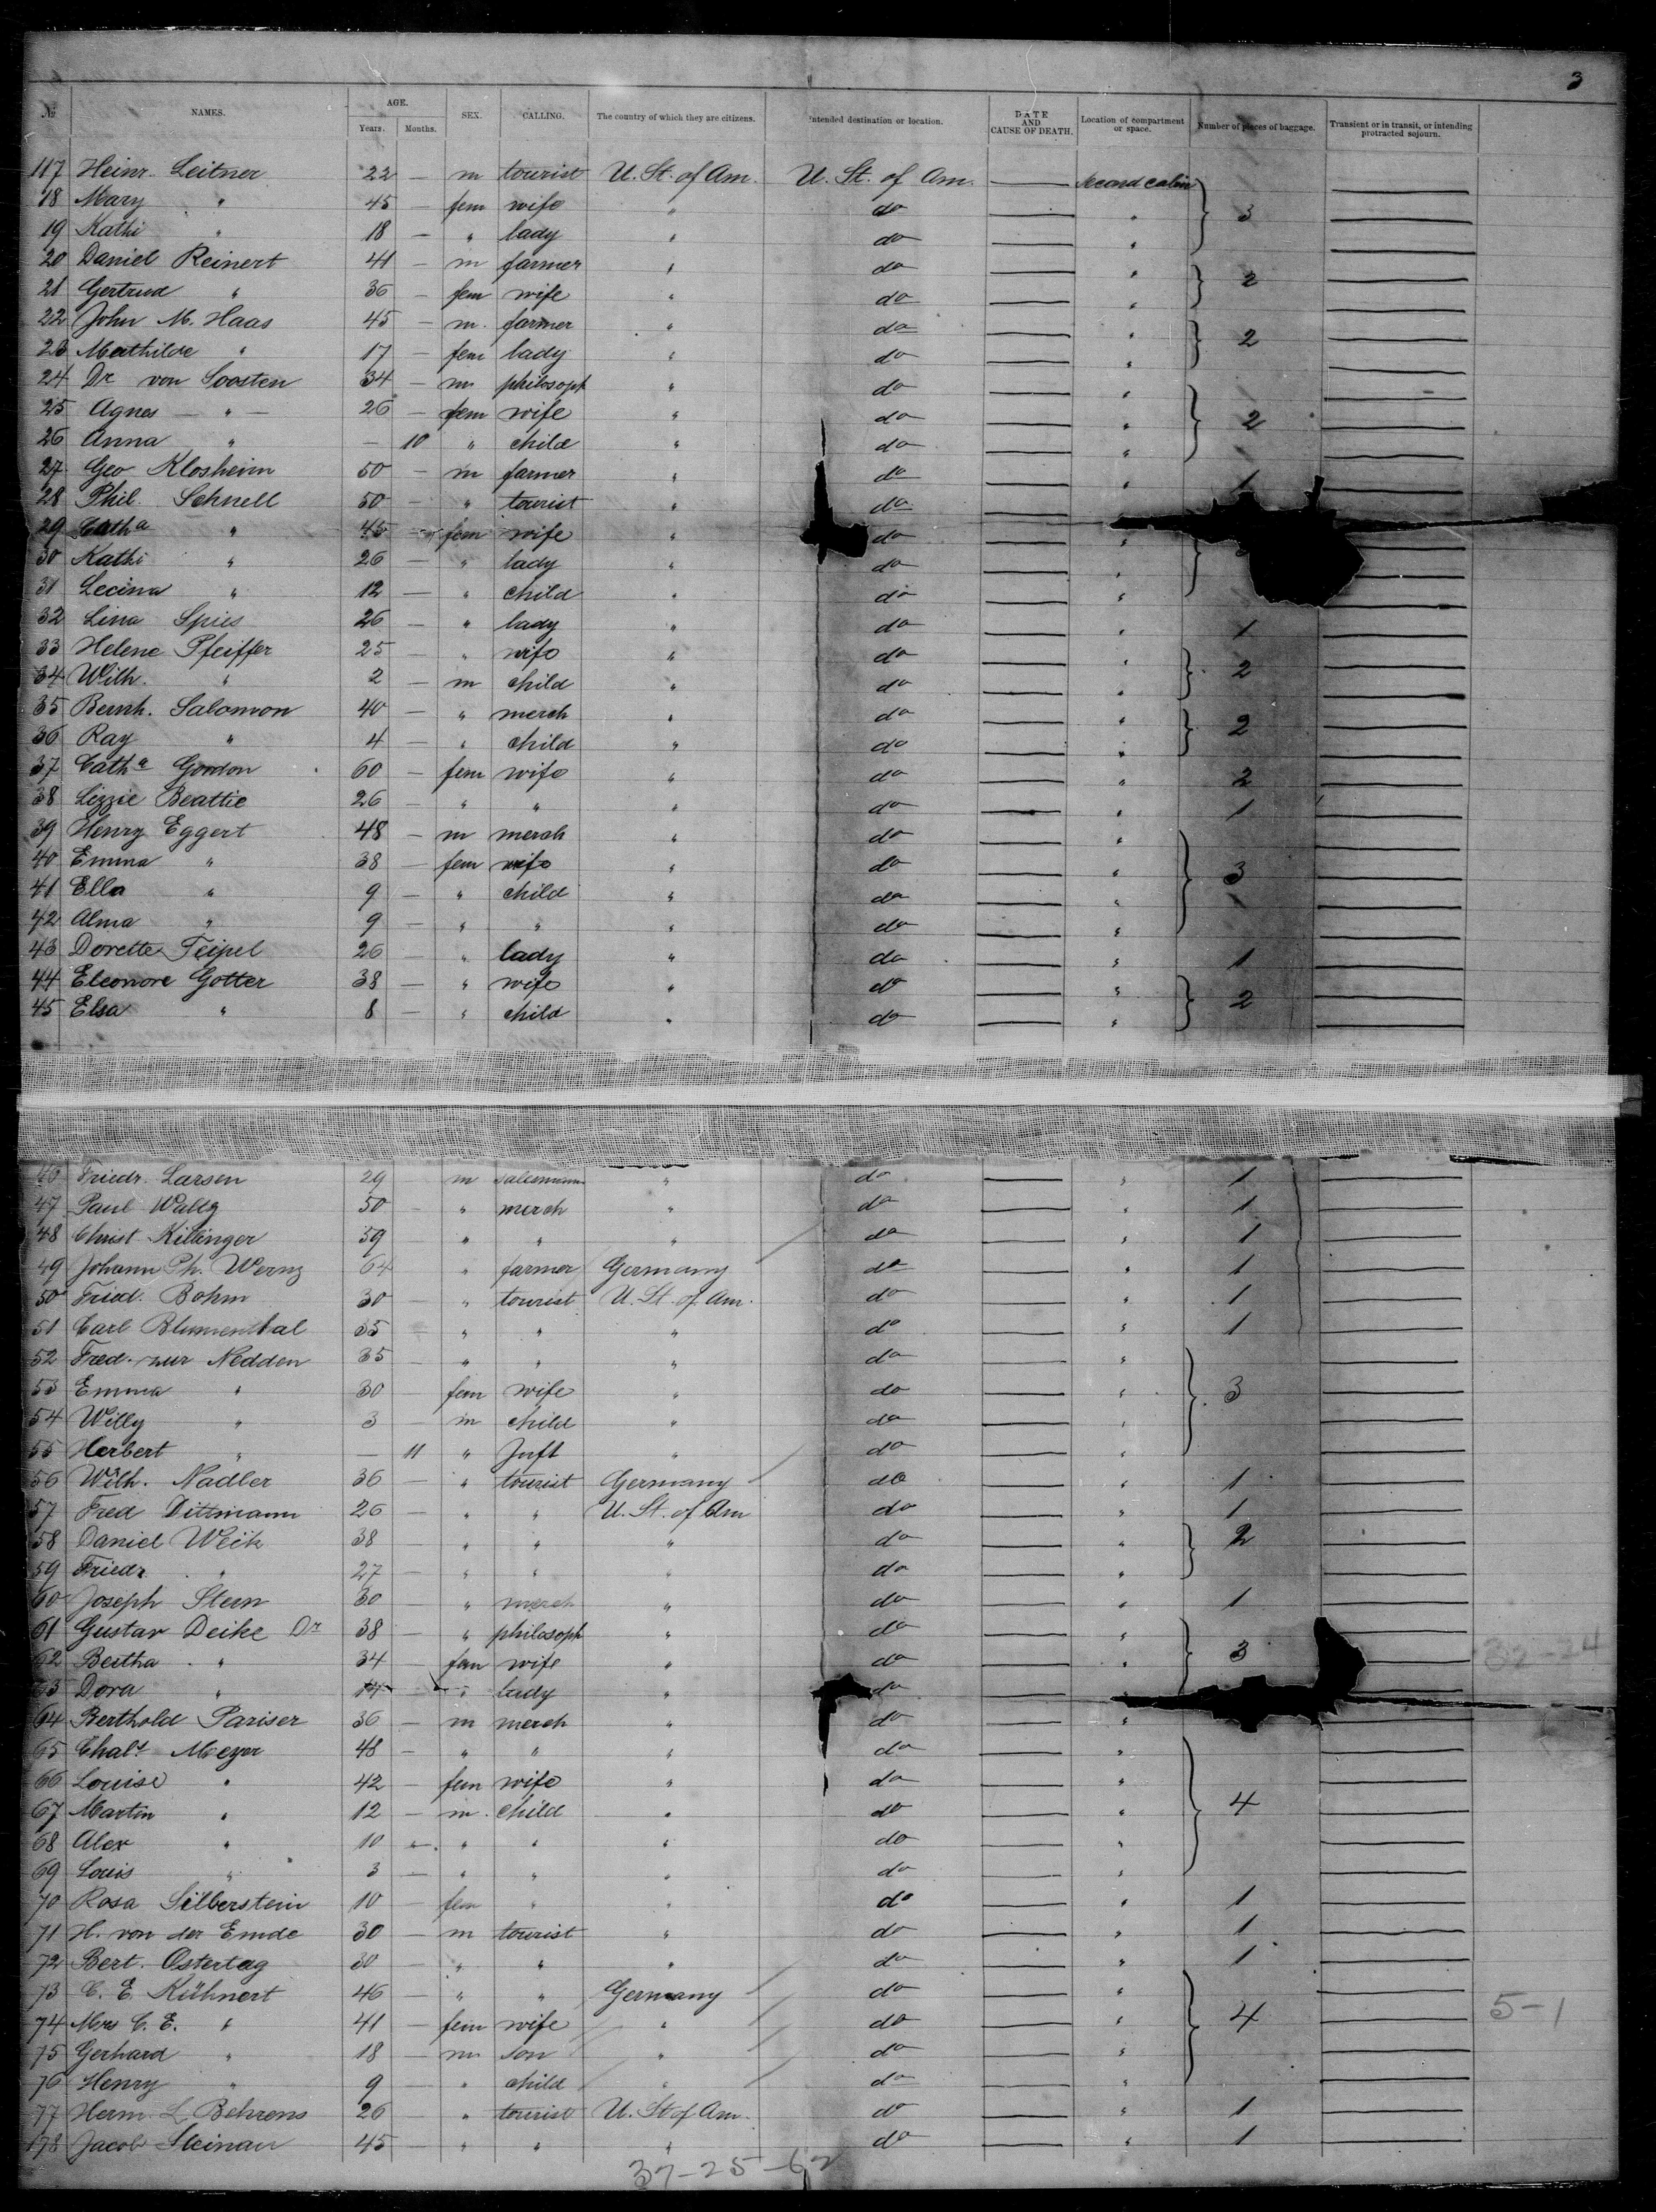 3
№ NAMES. AGE. Years. Months. SEX. CALLING. The country of which they are citizens. Intended destination or location. DATE AND CAUSE OF DEATH. Location of compartment or space. Number of pieces of baggage. Transient or in transit, or intending protracted sojourn.
117 Heinr. Leitner 22 — m tourist U. St. of Am. U. St. of Am. — second cabin —
18 Mary " 45 — fem wife " do — " 3 —
19 Kathi " 18 — " lady " do — " —
20 Daniel Reinert 41 — m farmer " do — " 2 —
21 Gertrud " 36 — fem wife " do — " —
22 John M. Haas 45 — m. farmer " do — " 2 —
23 Mathilde " 17 — fem lady " do — " —
24 Dr von Soosten 34 — m philosoph " do — " —
25 Agnes — " — 26 — fem wife " do — " 2 —
26 Anna " — 10 " child " do — " —
27 Geo Klosheim 50 — m farmer " do — " 1 —
28 Phil. Schnell 50 — " tourist " do —
29 Catha " 45 — fem wife " do — " —
30 Kathi " 26 — " lady " do — " —
31 Lecina " 12 — " child " do — " —
32 Lina Spies 26 — " lady " do — " 1 —
33 Helene Pfeiffer 25 — " wife " do — " 2 —
34 Wilh. " 2 — m child " do — " —
35 Bernh. Salomon 40 — " merch " do — " 2 —
36 Ray " 4 — " child " do — " —
37 Catha Gordon 60 — fem wife " do — " 2 —
38 Lizzie Beattie 26 — " " " do — " 1 —
39 Henry Eggert 48 — m merch " do — " —
40 Emma " 38 — fem wife " do — " 3 —
41 Ella " 9 — " child " do — " —
42 Alma " 9 — " " " do — " —
43 Dorette Teipel 26 — " lady " do — " 1 —
44 Eleonore Gotter 38 — " wife " do — " 2 —
45 Elsa " 8 — " child " do — " —
46 Friedr. Larsen 29 m salesmann " do — " 1 —
47 Paul Waltz 50 — " merch " do — " 1 —
48 Christ Killinger 59 " " " do — " 1 —
49 Johann Ph. Wernz 64 " farmer Germany do — " 1 —
50 Fried. Bohm 30 — " tourist U. St. of Am. do — " 1 —
51 Carl Blumenthal 35 — " " " do — " 1 —
52 Fred. zur Nedden 35 — " " " do — " —
53 Emma " 30 — fem wife " do — " 3 —
54 Willy " 3 — m child " do — " —
55 Herbert " — 11 " Juft " do — " —
56 Wilh. Nadler 36 — " tourist Germany do — " 1 —
57 Fred Dittmann 26 — " " U. St. of Am do — " 1 —
58 Daniel Weik 38 — " " " do — " 2 —
59 Friedr. " 27 — " " " do — " —
60 Joseph Stern 30 — " merch " do — " 1 —
61 Gustav Deike Dr 38 — " philosoph " do — " —
62 Bertha " 34 — fem wife " do — " 3 —
63 Dora " 14 — " lady " do — " —
64 Berthold Pariser 36 — m merch " do — " —
65 Chals Meyer 48 — " " " do — " —
66 Louise " 42 — fem wife " do — " —
67 Martin " 12 — m. child " do — " 4 —
68 Alex " 10 — " " " do — " —
69 Louis " 3 — " " " do — " —
70 Rosa Silberstein 10 — fem " " do — " 1 —
71 H. von der Emde 30 — m tourist " do — " 1 —
72 Bert. Ostertag 30 — " " " do — " 1 —
73 C. E. Kühnert 46 — " " Germany do — " —
74 Mrs C. E. " 41 — fem wife " do — " 4 — 5-1
75 Gerhard " 18 — m son " do — " —
76 Henry " 9 — " child " do — " —
77 Herm. L Behrens 26 — " tourist U. St of Am. do — " 1 —
178 Jacob Steinau 45 — " " " do — " 1 —
37-25-62